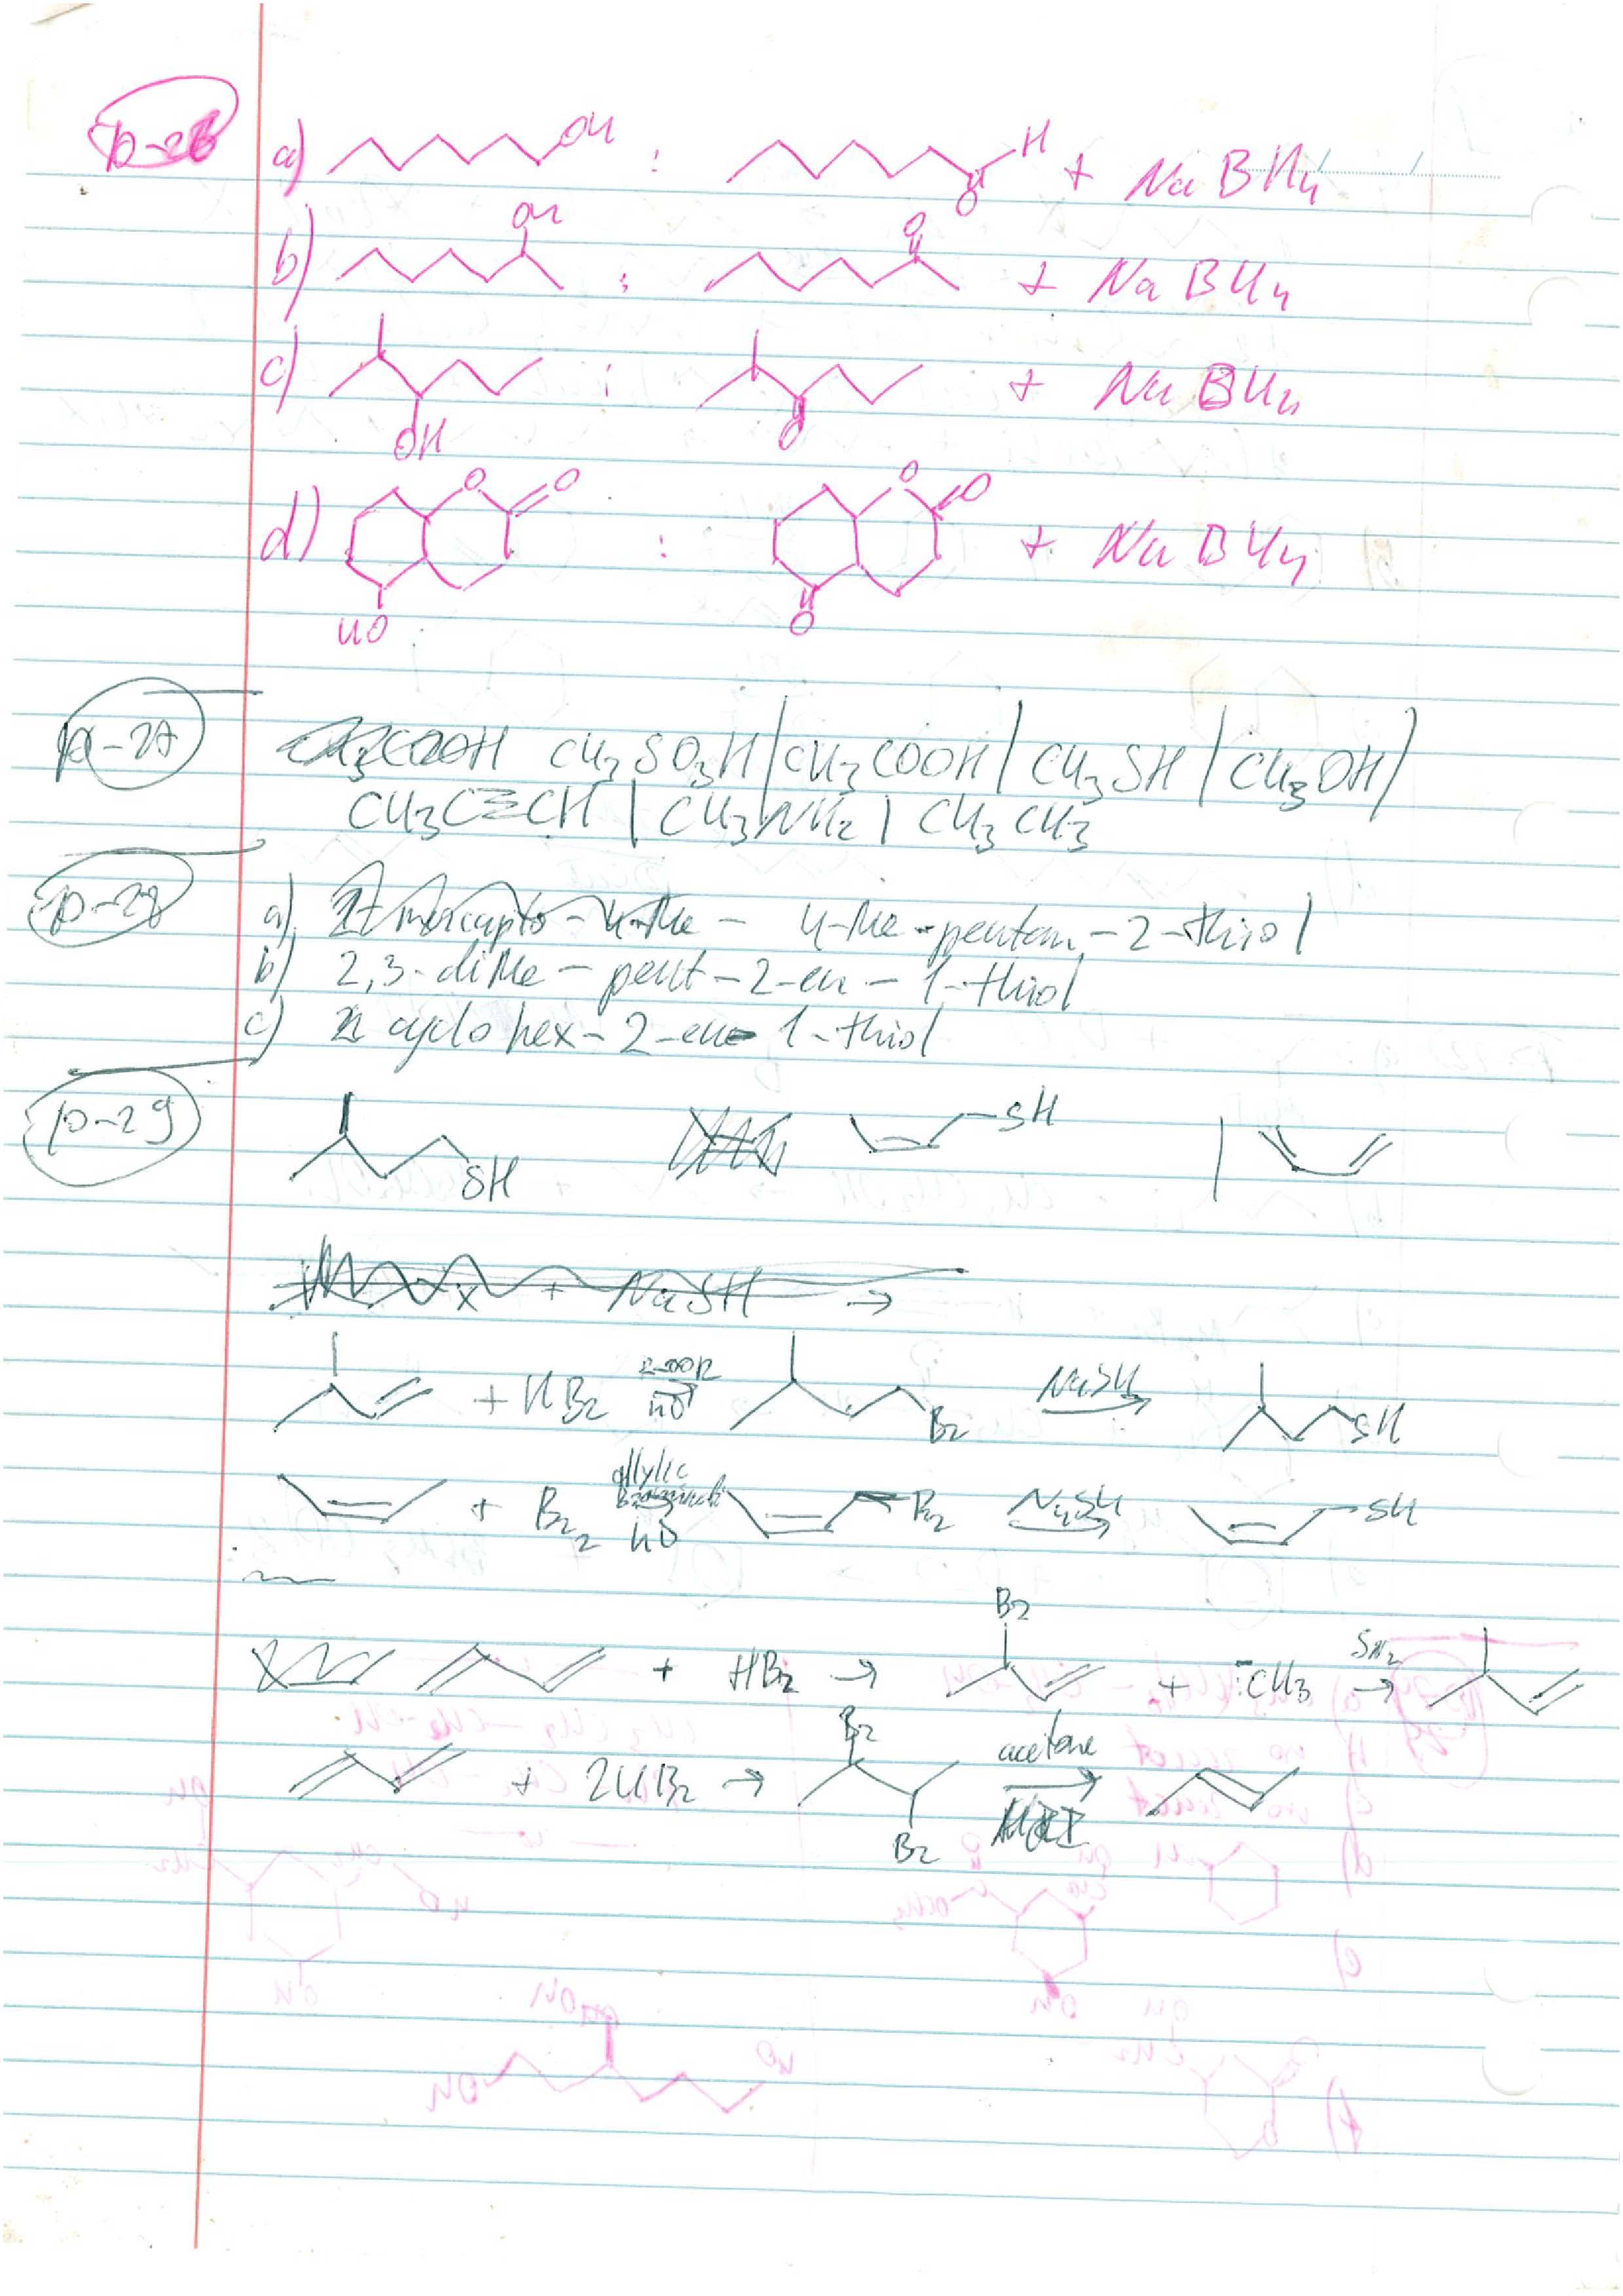 p-26 a) OH : H O + NaBH4
b) OH : O + NaBH4
c) OH : O + NaBH4
d) O O HO : O O O + NaBH4
p-27 CH3COOH CH3SO3H | CH3COOH | CH3SH | CH3OH |
CH3C≡CH | CH3NH2 | CH3CH3
p-28 a) 4-Me-pentan-2-thiol
b) 2,3-diMe-pent-2-en-1-thiol
c) cyclohex-2-en-1-thiol
p-29 SH SH |
x + NaSH →
+ HBr ROOR hν Br NaSH SH
+ Br2 allylic hν Br NaSH SH
+ HBr → Br + :CH3 SN2 →
+ 2HBr → Br Br acetone →